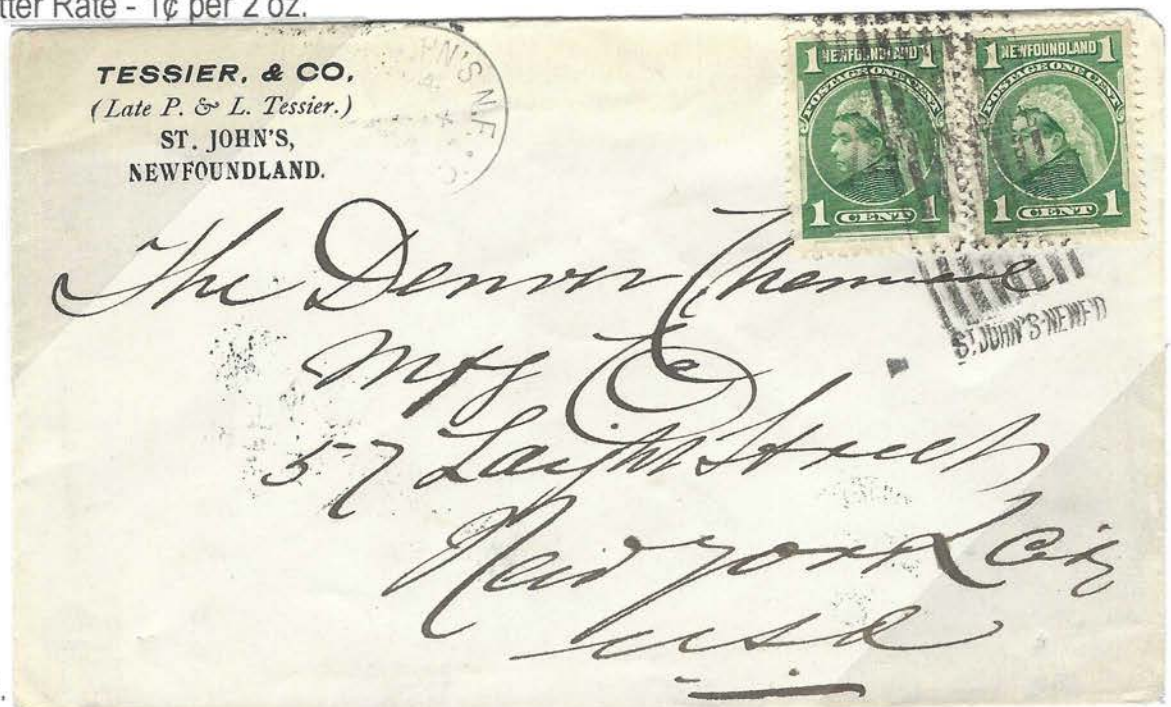 tter Rate - 1¢ per 2 oz.
TESSIER, & CO,
(Late P. & L. Tessier.)
ST. JOHN'S,
NEWFOUNDLAND.
HN'S N.F.
1 NEWFOUNDLAND 1
POSTAGE ONE CENT
1 CENT 1
1 NEWFOUNDLAND 1
POSTAGE ONE CENT
1 CENT 1
ST. JOHN'S NEWF'D
The Denver Chemical
Mfg Co
57 Laight Street
New York City
USA